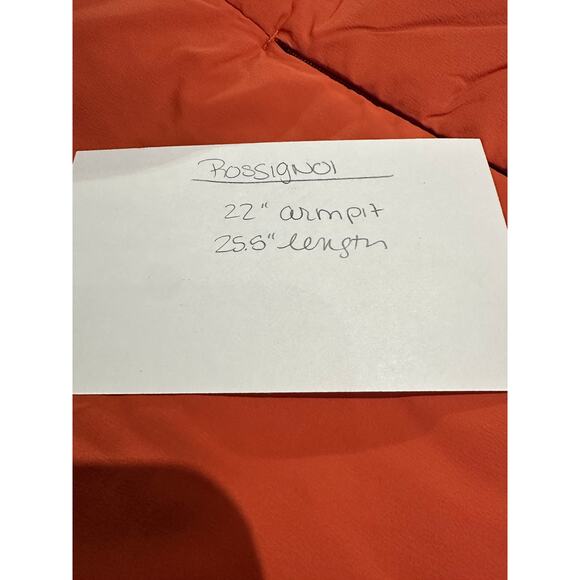 ROSSIGNOl
22" armpit
25.5" length